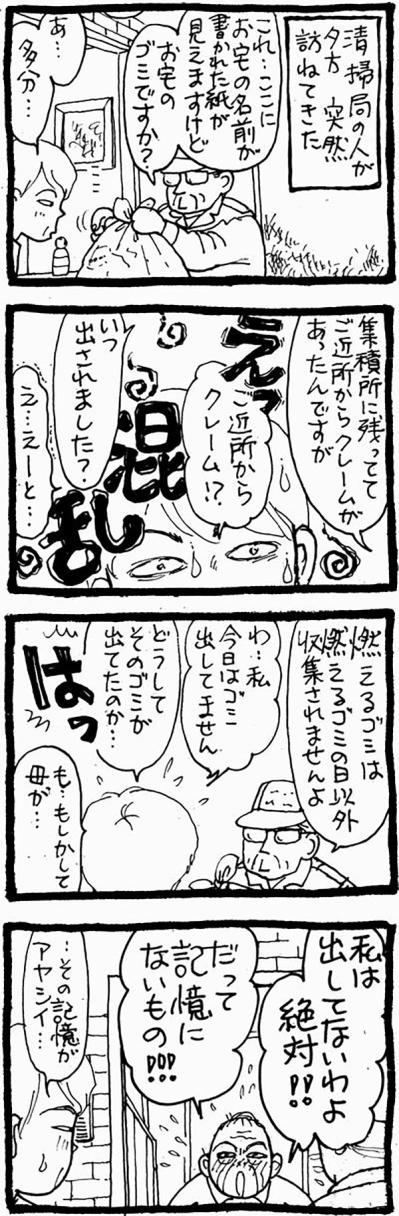 清掃局の人が
夕方 突然
訪ねてきた
これ…ここに
お宅の名前が
書かれた紙が
見えますけど
お宅の
ゴミですか？
あ…
多分…
集積所に残ってて
ご近所からクレームが
あったんですが
えっ
ご近所から
クレーム!?
混乱
いつ
出されました？
え…えーと…
燃えるゴミは
燃えるゴミの日以外
収集されませんよ
わ…私
今日はゴミ
出してません
どうして
そのゴミが
出てたのか…
はっ
も…もしかして
母が…
私は
出してないわよ
絶対!!
だって
記憶に
ないもの!!!
…その記憶が
アヤシイ…